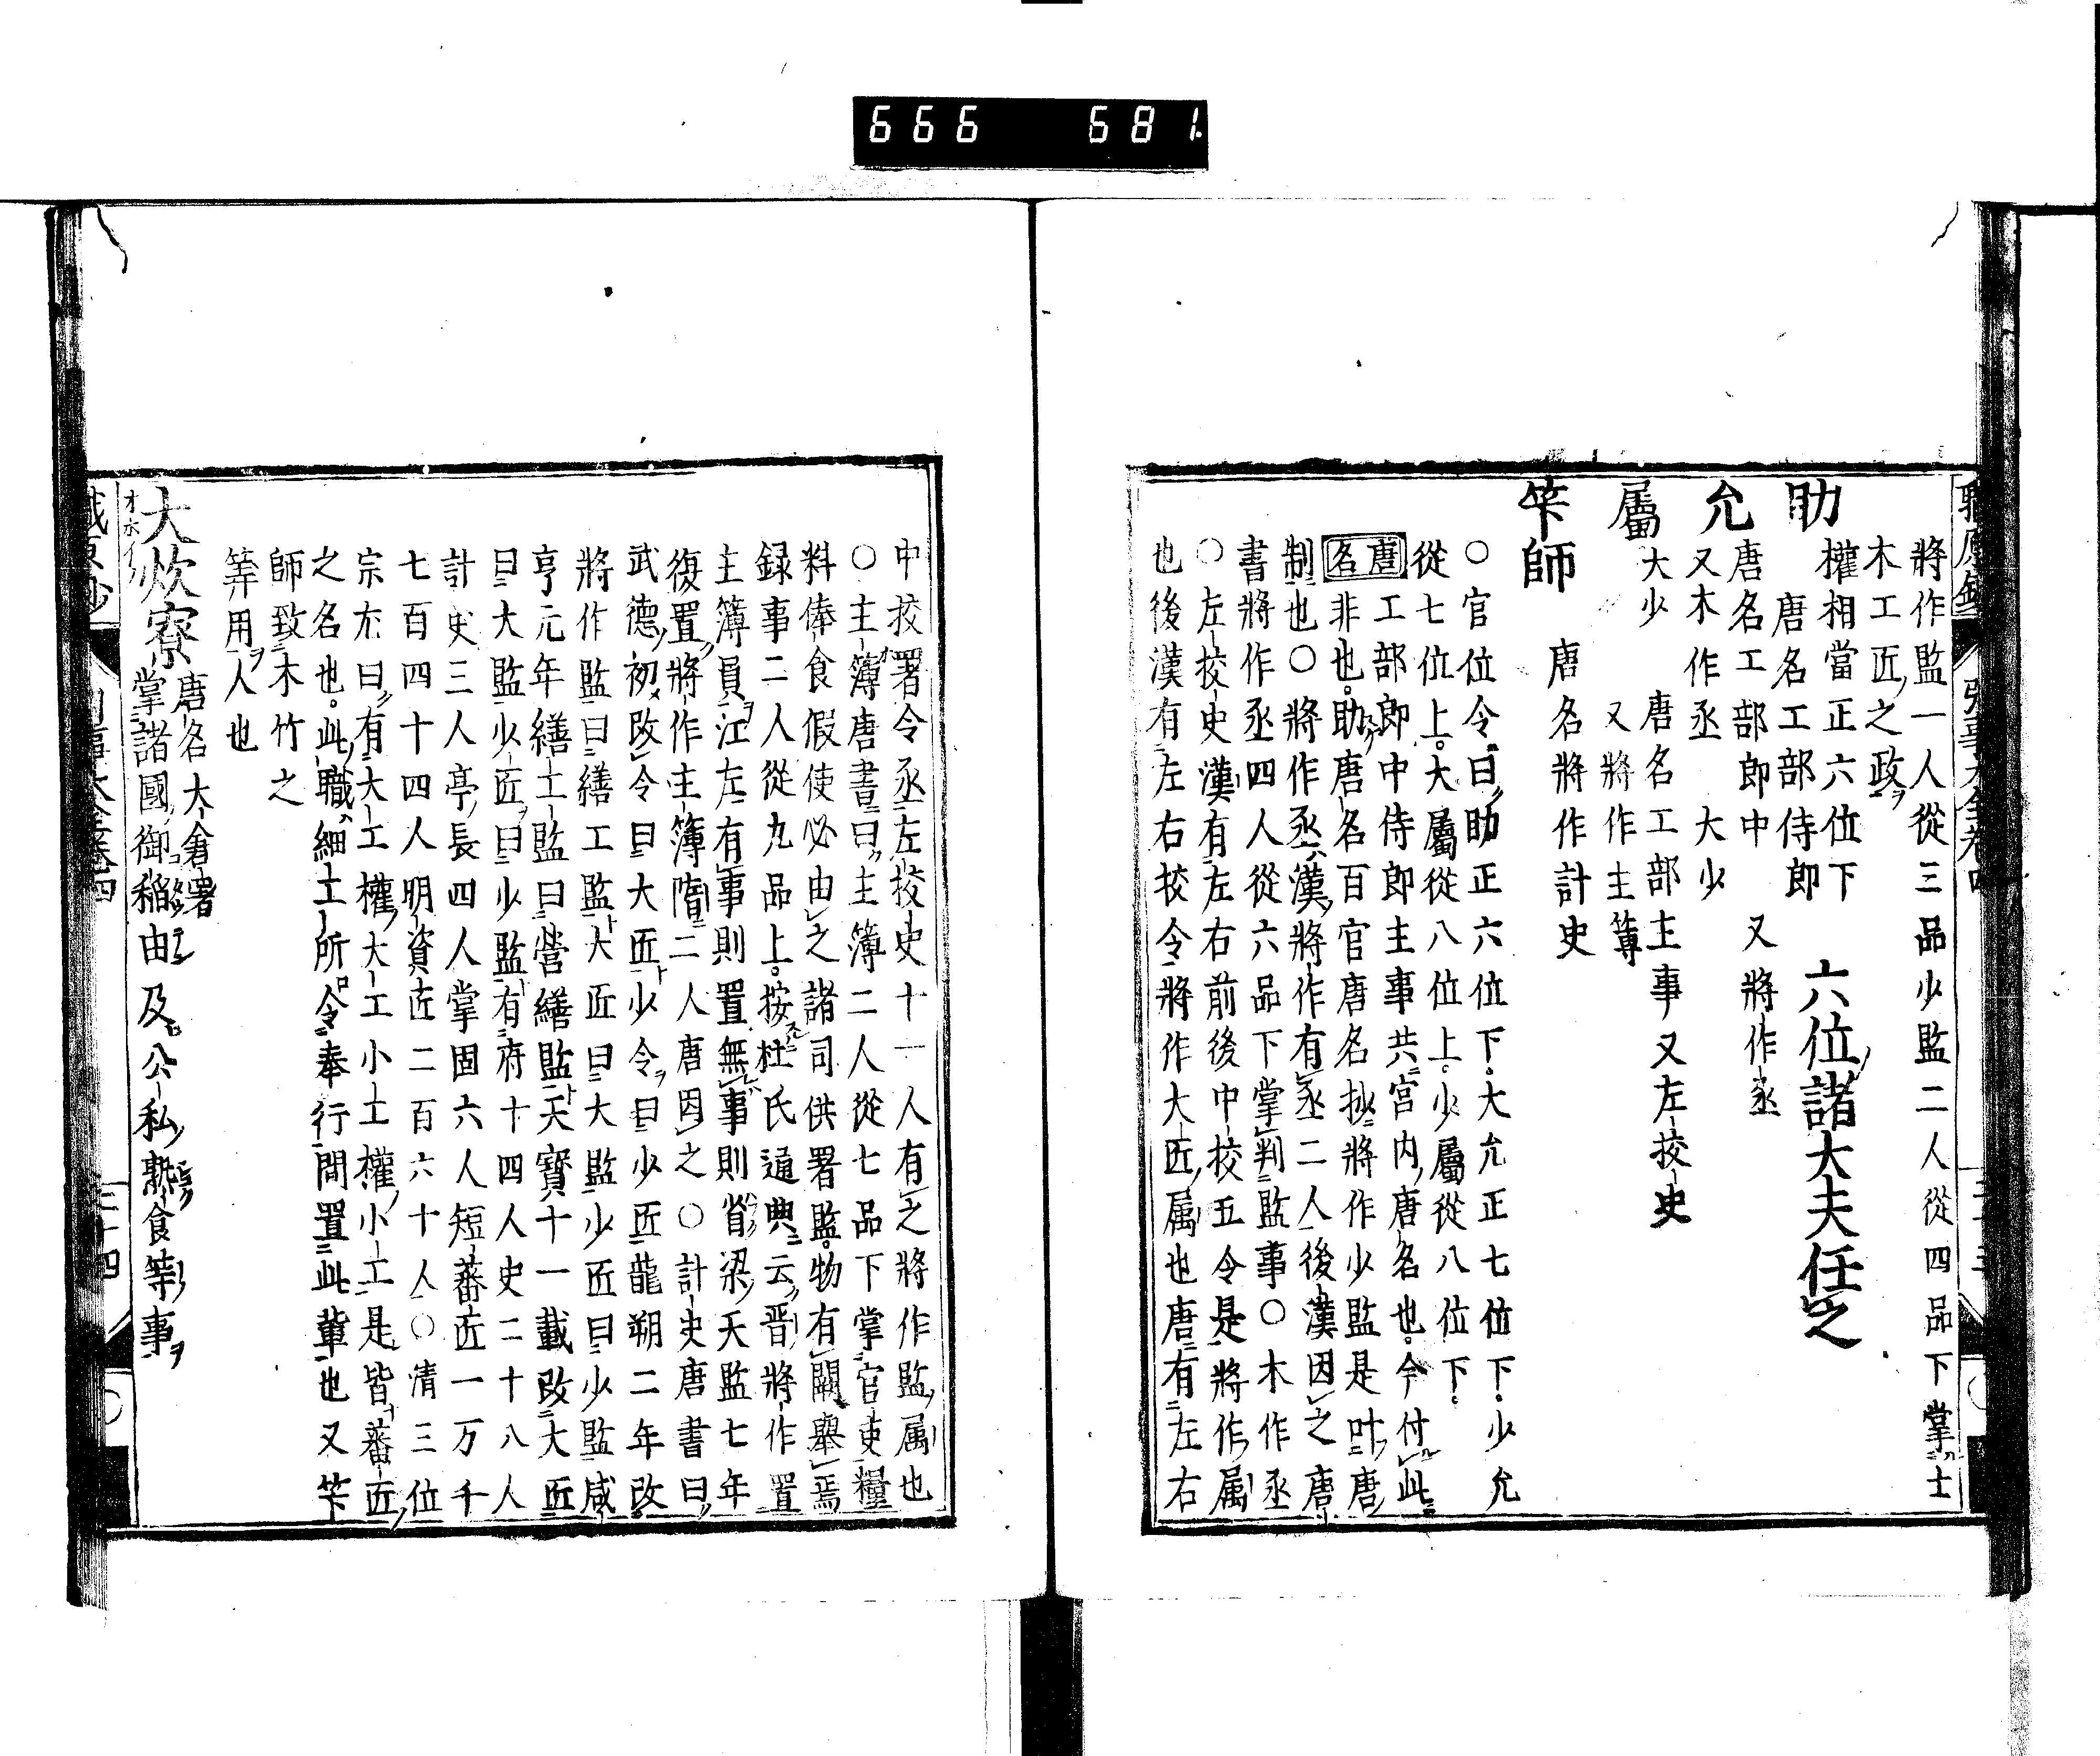 666 681
將作監一人從三品少監二人從四品下掌士
木工匠之政
助 權相當正六位下 唐名工部侍郎 六位諸大夫任之
允 唐名工部郎中 又將作丞
又木作丞 大少
屬 大少 唐名工部主事又左挍史
又將作主簿
笇師 唐名將作計史
○官位令曰助正六位下大允正七位下少允
從七位上大屬從八位上少屬從八位下
唐名工部郎中侍郎主事共宮内唐名也今付此
非也助唐名百官唐名抄將作少監是叶唐
制也○將作丞漢將作有丞二人後漢因之唐
書將作丞四人從六品下掌判監事○木作丞
○左挍史漢有左右前後中挍五令是將作属
也後漢有左右挍令將作大匠属也唐有左右
中挍署令丞左挍史十一人有之將作監属也
○主簿唐書曰主簿二人從七品下掌官吏糧
料俸食假使必由之諸司供署監物有闕舉焉
録事二人從九品上按杜氏通典云晋將作置
主簿員江左有事則置無事則省梁天監七年
復置將作主簿隋二人唐因之○計史唐書曰
武德初改令曰大匠少令曰少匠龍朔二年改
將作監曰繕工監大匠曰大監少匠曰少監咸
亨元年繕工監曰營繕監天寶十一載改大匠
曰大監少匠曰少監有府十四人史二十八人
計史三人亭長四人掌固六人短蕃匠一万千
七百四十四人明資匠二百六十人○清三位
宗尤曰有大工權大工小工權小工是皆蕃匠
之名也此職細工所令奉行間置此輩也又笇
師致木竹之
筭用人也
大炊寮 唐名大倉署
オホイ
掌諸國御稲由及公私熟食等事